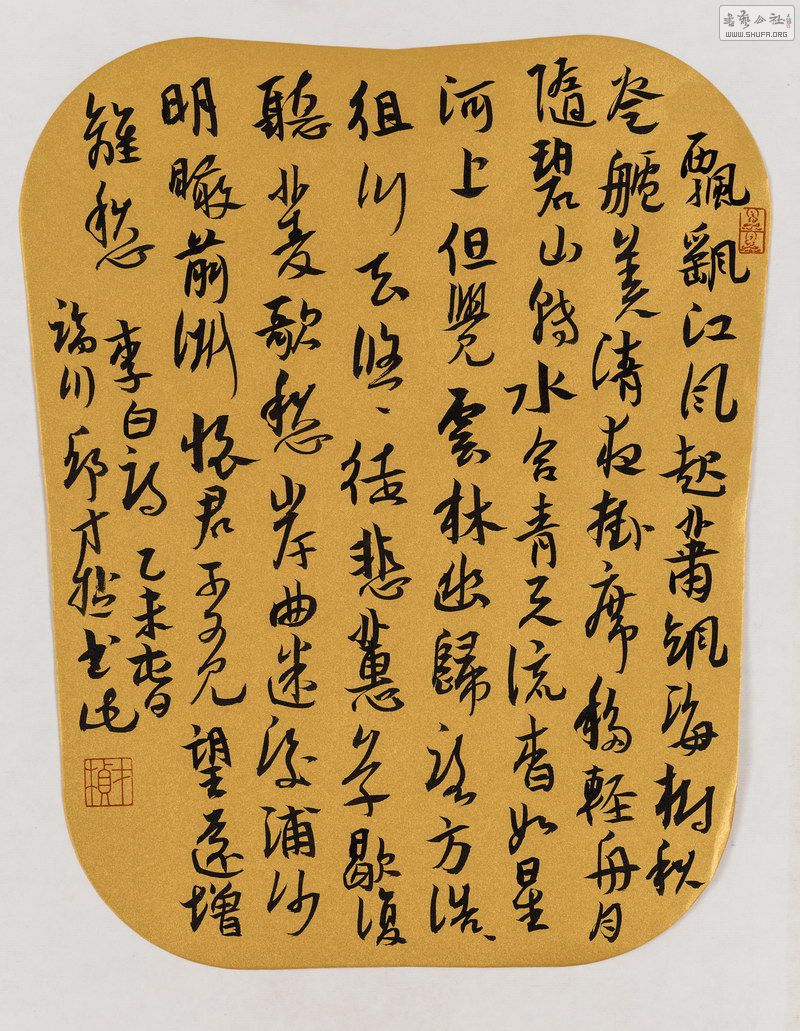 飄颻江风起蕭颯海樹秋
登艫美清夜掛席移輕舟月
隨碧山轉水合青天流杳如星
河上但覺雲林幽歸路方浩、
徂川去悠、徒悲蕙草歇復
聽菱歌愁岸曲迷後浦沙
明瞰前洲懷君不可見望遠增
離愁
李白詩 乙未春
臨川 才楨书
書藝公社
WWW.SHUFA.ORG